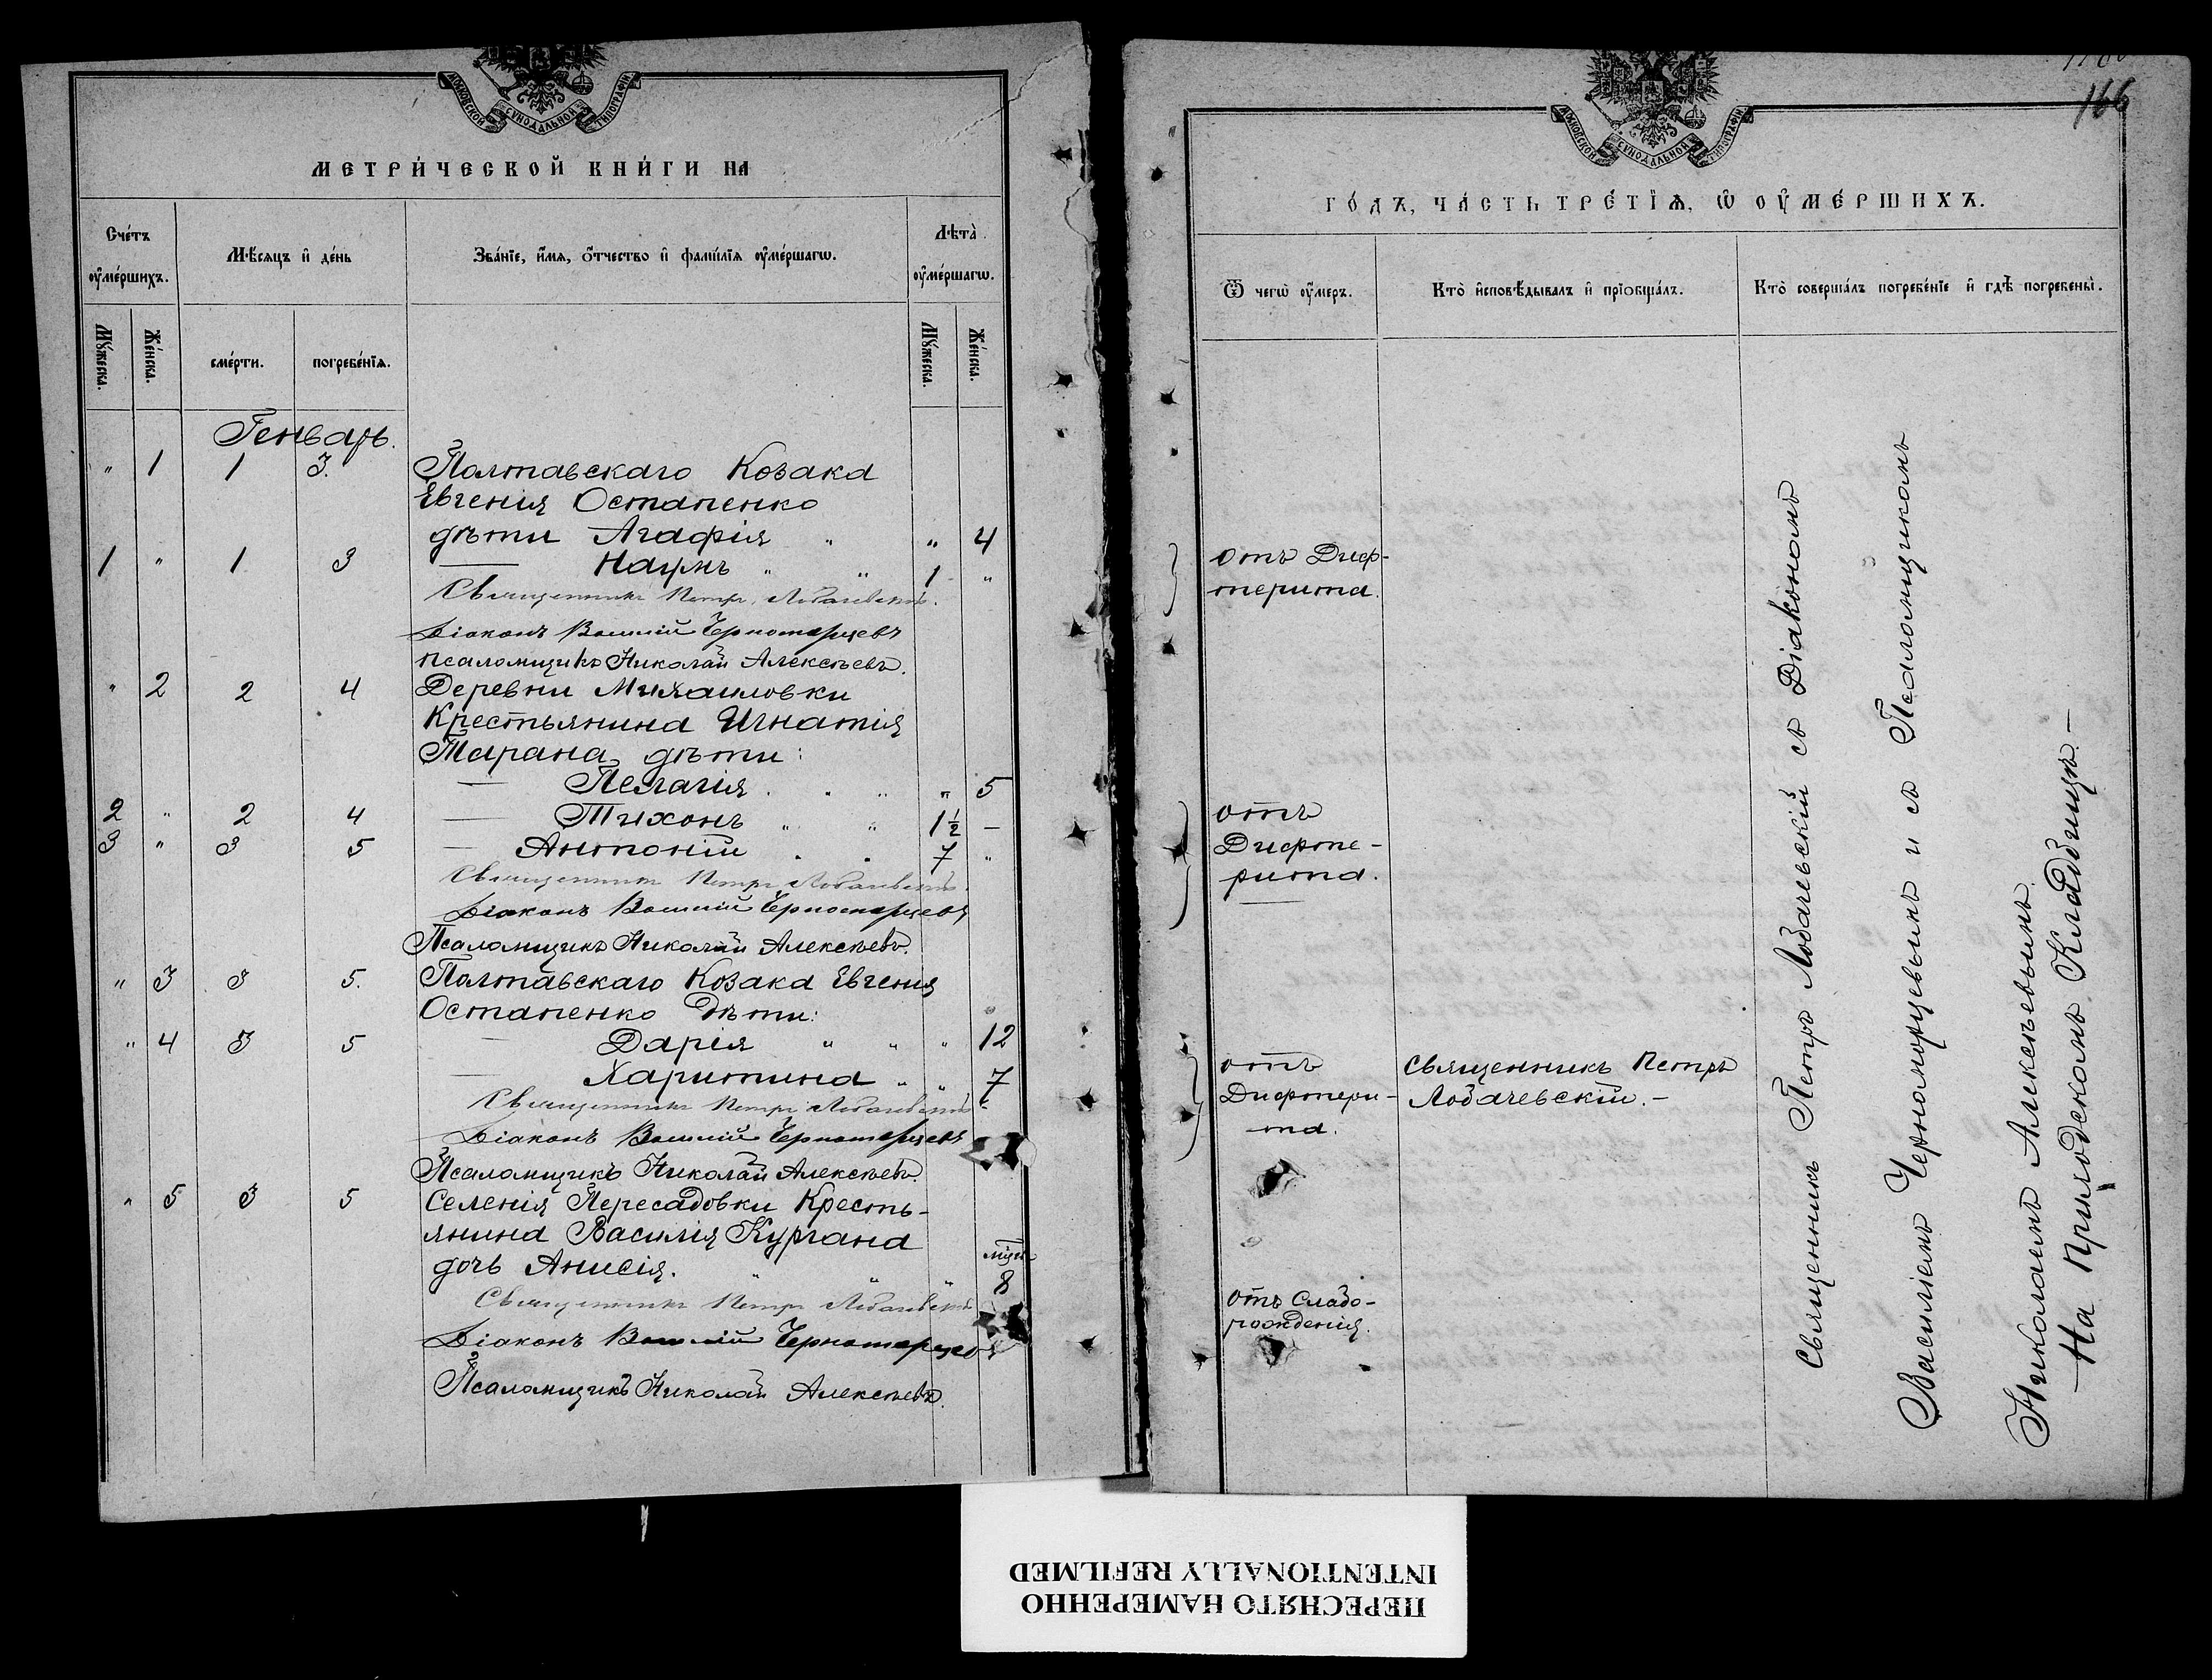 МОСКОВСКОЙ СѴНОДАЛЬНОЙ ТИПОГРАФІИ
МЕТРИ́ЧЕСКОЙ КНИ́ГИ НА
Сче́тъ ᲂу҆ме́ршихъ.
Мѣ́сяцъ и҆ де́нь
Зва́нїе, и҆́мя, ѻ҆́тчество и҆ фами́лїя ᲂу҆ме́ршагѡ.
Лѣта̀ ᲂу҆ме́ршагѡ.
Мꙋ́жеска.
Же́нска.
сме́рти.
погребе́нїѧ.
Мꙋ́жеска.
Же́нска.
Генварь.
" 1 1 3. Полтавскаго Козака
Евгенія Остапенко
дѣти Агафія " " 4
1 " 1 3 — Наумъ " " 1 "
Священникъ Петръ Лобачевскій.
Діаконъ Василій Черноморцевъ
Псаломщикъ Николай Алексѣевъ.
" 2 2 4 Деревни Михаиловки
Крестьянина Игнатія
Тарана дѣти:
— Пелагія . . " " 5
2 " 2 4 — Тихонъ " " 1½ —
3 " 3 5 — Антоній . . 7 "
Священникъ Петръ Лобачевскій.
Діаконъ Василій Черноморцевъ
Псаломщикъ Николай Алексѣевъ.
" 3 3 5. Полтавскаго Козака Евгенія
Остапенко дѣти:
" 4 3 5 — Дарія " " " 12
— Харитина " " 7
Священникъ Петръ Лобачевскій
Діаконъ Василій Черноморцевъ
Псаломщикъ Николай Алексѣевъ.
" 5 3 5 Селенія Пересадовки Кресть-
янина Василія Кургана
дочь Анисія. " " " мцъ 8
Священникъ Петръ Лобачевскій
Діаконъ Василій Черноморцевъ
Псаломщикъ Николай Алексѣевъ.
166
МОСКОВСКОЙ СѴНОДАЛЬНОЙ ТИПОГРАФІИ
ГО́ДЪ, ЧА́СТЬ ТРЕ́ТЇѦ, Ѡ ОУ҆МЕ́РШИХЪ.
Ѿ чегѡ̀ ᲂу҆́меръ.
Кто̀ и҆сповѣ́дывалъ и҆ прїобща́лъ.
Кто̀ соверша́лъ погребе́нїе и҆ гдѣ̀ погребены̀.
отъ Диф-
терита.
отъ
Дифте-
рита.
отъ
Дифтери-
та.
Священникъ Петръ
Лобачевскій.—
отъ Слабо-
рожденія.
Священникъ Петръ Лобачевскій съ Діакономъ
Василіемъ Черноморцевымъ и съ Псаломщикомъ
Николаемъ Алексѣевымъ.
—На приходскомъ Кладбищѣ.—
ПЕРЕСНЯТО НАМЕРЕННО
INTENTIONALLY REFILMED